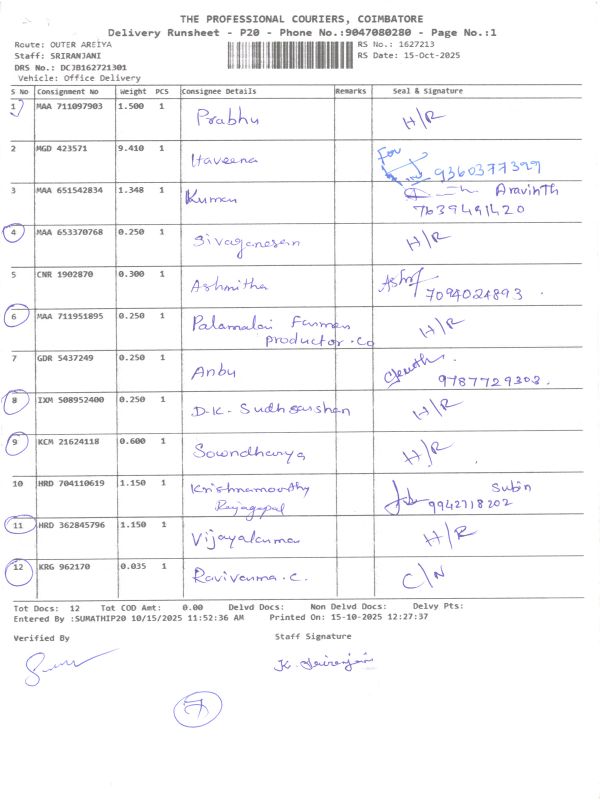 THE PROFESSIONAL COURIERS, COIMBATORE
Delivery Runsheet - P20 - Phone No.:9047080280 - Page No.:1
Route: OUTER AREIYA RS No.: 1627213
Staff: SRIRANJANI RS Date: 15-Oct-2025
DRS No.: DCJB162721301
Vehicle: Office Delivery
S No Consignment No Weight PCS Consignee Details Remarks Seal & Signature
1 MAA 711097903 1.500 1 Prabhu H/R
2 MGD 423571 9.410 1 Haveena For 9360377399
3 MAA 651542834 1.348 1 Kumar Aravinth
7639491420
4 MAA 653370768 0.250 1 Sivaganesan H/R
5 CNR 1902870 0.300 1 Ashmitha
7094024893
6 MAA 711951895 0.250 1 Palamalai Farmer H/R
productor.Co
7 GDR 5437249 0.250 1 Anbu
9787729303
8 IXM 508952400 0.250 1 D.K. Sudharshan H/R
9 KCM 21624118 0.600 1 Sowndharya H/R
10 HRD 704110619 1.150 1 Krishnamoorthy Subin
Rajagopal 9942718202
11 HRD 362845796 1.150 1 Vijayakumar H/R
12 KRG 962170 0.035 1 Ravivarma.C. C/N
Tot Docs: 12 Tot COD Amt: 0.00 Delvd Docs: Non Delvd Docs: Delvy Pts:
Entered By :SUMATHIP20 10/15/2025 11:52:36 AM Printed On: 15-10-2025 12:27:37
Verified By Staff Signature
K. Sriranjani
7